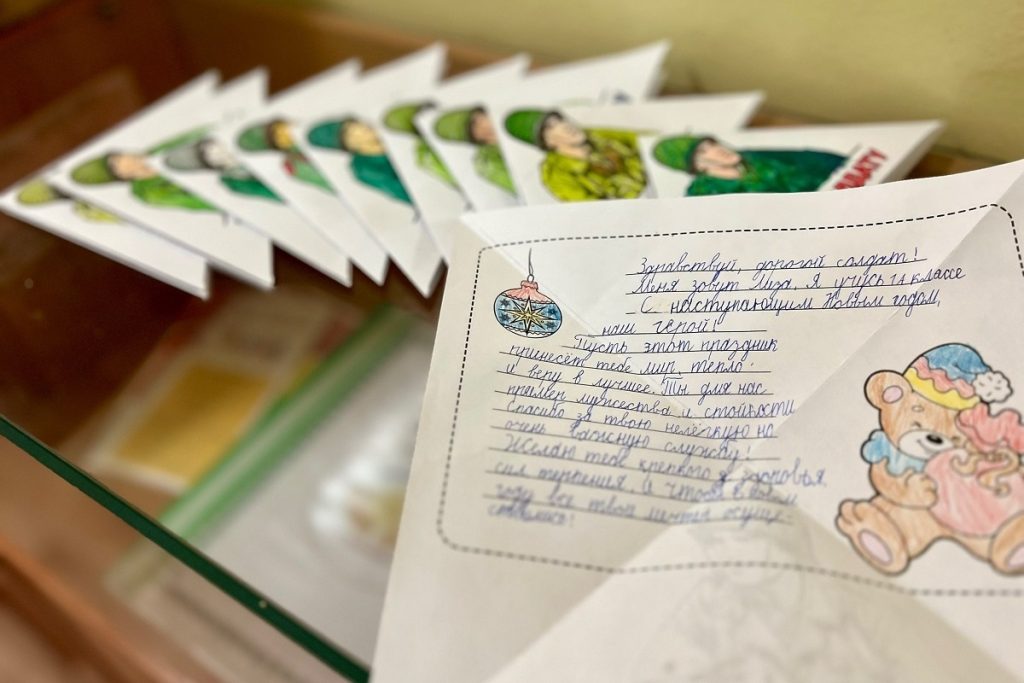 Здравствуй, дорогой солдат!
Меня зовут Лиза, Я учусь классе
С наступающим Новым годом,
наш герой!
Пусть этот праздник
принесёт тебе мир, тепло
и веру в лучшее. Ты для нас
пример мужества и стойкости
Спасибо за твою нелёгкую но
очень важную службу!
Желаю тебе крепкого здоровья
сил терпения, и чтоб в
году все твои мечты осуще-